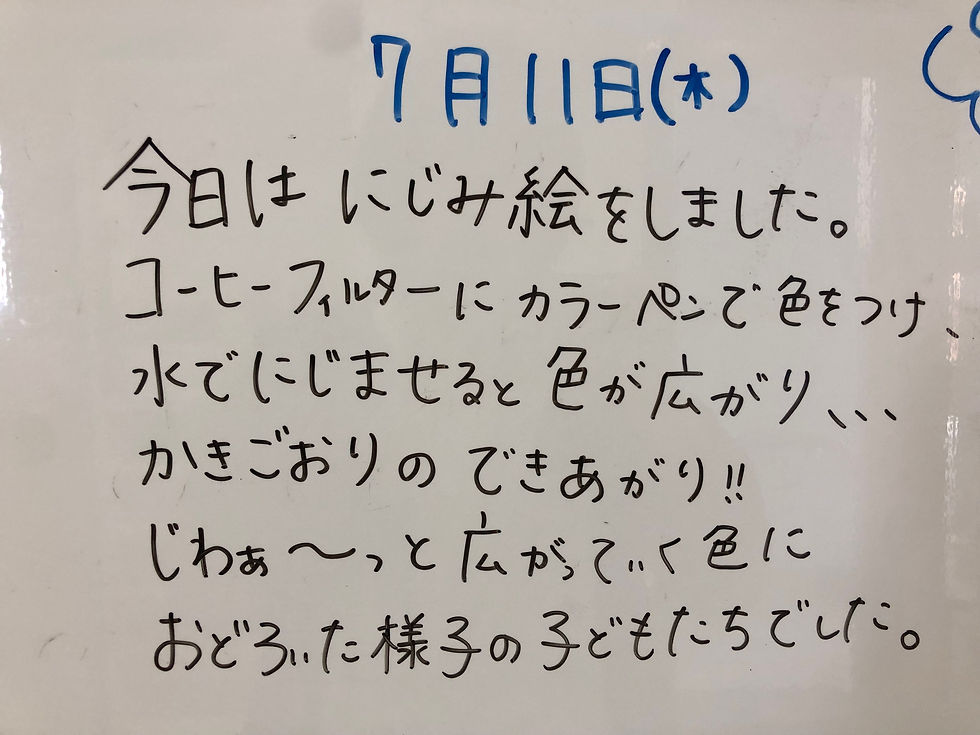 7月11日(木)
今日は にじみ絵をしました。
コーヒーフィルターに カラーペンで 色をつけ、
水でにじませると 色が広がり、、、
かきごおりの できあがり!!
じわぁ〜っと 広がっていく 色に
おどろいた様子の子どもたちでした。